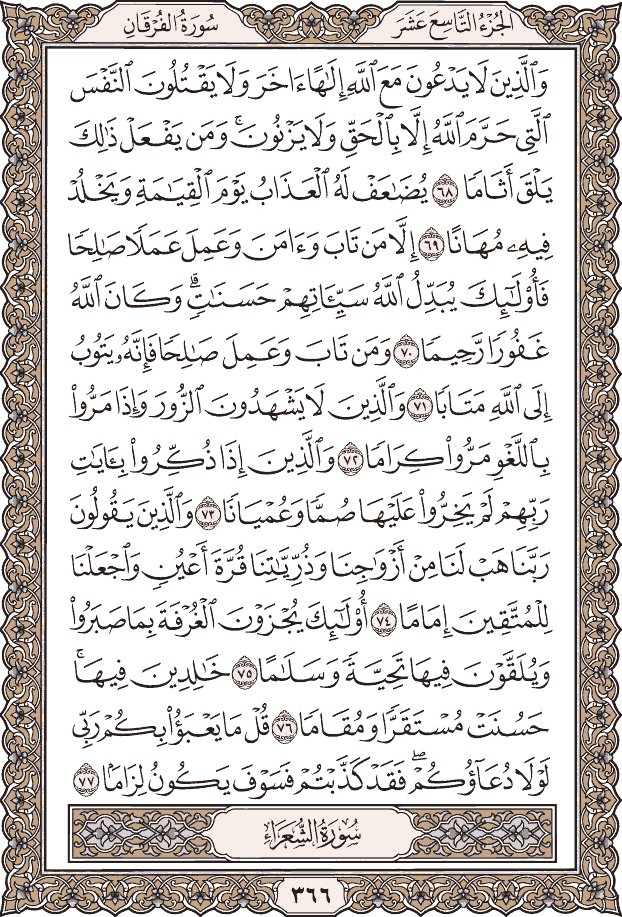 الجزء التاسع عشر
سورة الفرقان
وَٱلَّذِينَ لَا يَدْعُونَ مَعَ ٱللَّهِ إِلَٰهًا ءَاخَرَ وَلَا يَقْتُلُونَ ٱلنَّفْسَ
ٱلَّتِى حَرَّمَ ٱللَّهُ إِلَّا بِٱلْحَقِّ وَلَا يَزْنُونَۚ وَمَن يَفْعَلْ ذَٰلِكَ
يَلْقَ أَثَامًا ٦٨ يُضَٰعَفْ لَهُ ٱلْعَذَابُ يَوْمَ ٱلْقِيَٰمَةِ وَيَخْلُدْ
فِيهِۦ مُهَانًا ٦٩ إِلَّا مَن تَابَ وَءَامَنَ وَعَمِلَ عَمَلًا صَٰلِحًا
فَأُو۟لَٰٓئِكَ يُبَدِّلُ ٱللَّهُ سَيِّـَٔاتِهِمْ حَسَنَٰتٍۗ وَكَانَ ٱللَّهُ
غَفُورًا رَّحِيمًا ٧٠ وَمَن تَابَ وَعَمِلَ صَٰلِحًا فَإِنَّهُۥ يَتُوبُ
إِلَى ٱللَّهِ مَتَابًا ٧١ وَٱلَّذِينَ لَا يَشْهَدُونَ ٱلزُّورَ وَإِذَا مَرُّوا۟
بِٱللَّغْوِ مَرُّوا۟ كِرَامًا ٧٢ وَٱلَّذِينَ إِذَا ذُكِّرُوا۟ بِـَٔايَٰتِ
رَبِّهِمْ لَمْ يَخِرُّوا۟ عَلَيْهَا صُمًّا وَعُمْيَانًا ٧٣ وَٱلَّذِينَ يَقُولُونَ
رَبَّنَا هَبْ لَنَا مِنْ أَزْوَٰجِنَا وَذُرِّيَّٰتِنَا قُرَّةَ أَعْيُنٍ وَٱجْعَلْنَا
لِلْمُتَّقِينَ إِمَامًا ٧٤ أُو۟لَٰٓئِكَ يُجْزَوْنَ ٱلْغُرْفَةَ بِمَا صَبَرُوا۟
وَيُلَقَّوْنَ فِيهَا تَحِيَّةً وَسَلَٰمًا ٧٥ خَٰلِدِينَ فِيهَاۚ
حَسُنَتْ مُسْتَقَرًّا وَمُقَامًا ٧٦ قُلْ مَا يَعْبَؤُا۟ بِكُمْ رَبِّى
لَوْلَا دُعَآؤُكُمْۖ فَقَدْ كَذَّبْتُمْ فَسَوْفَ يَكُونُ لِزَامًۢا ٧٧
سورة الشعراء
٣٦٦